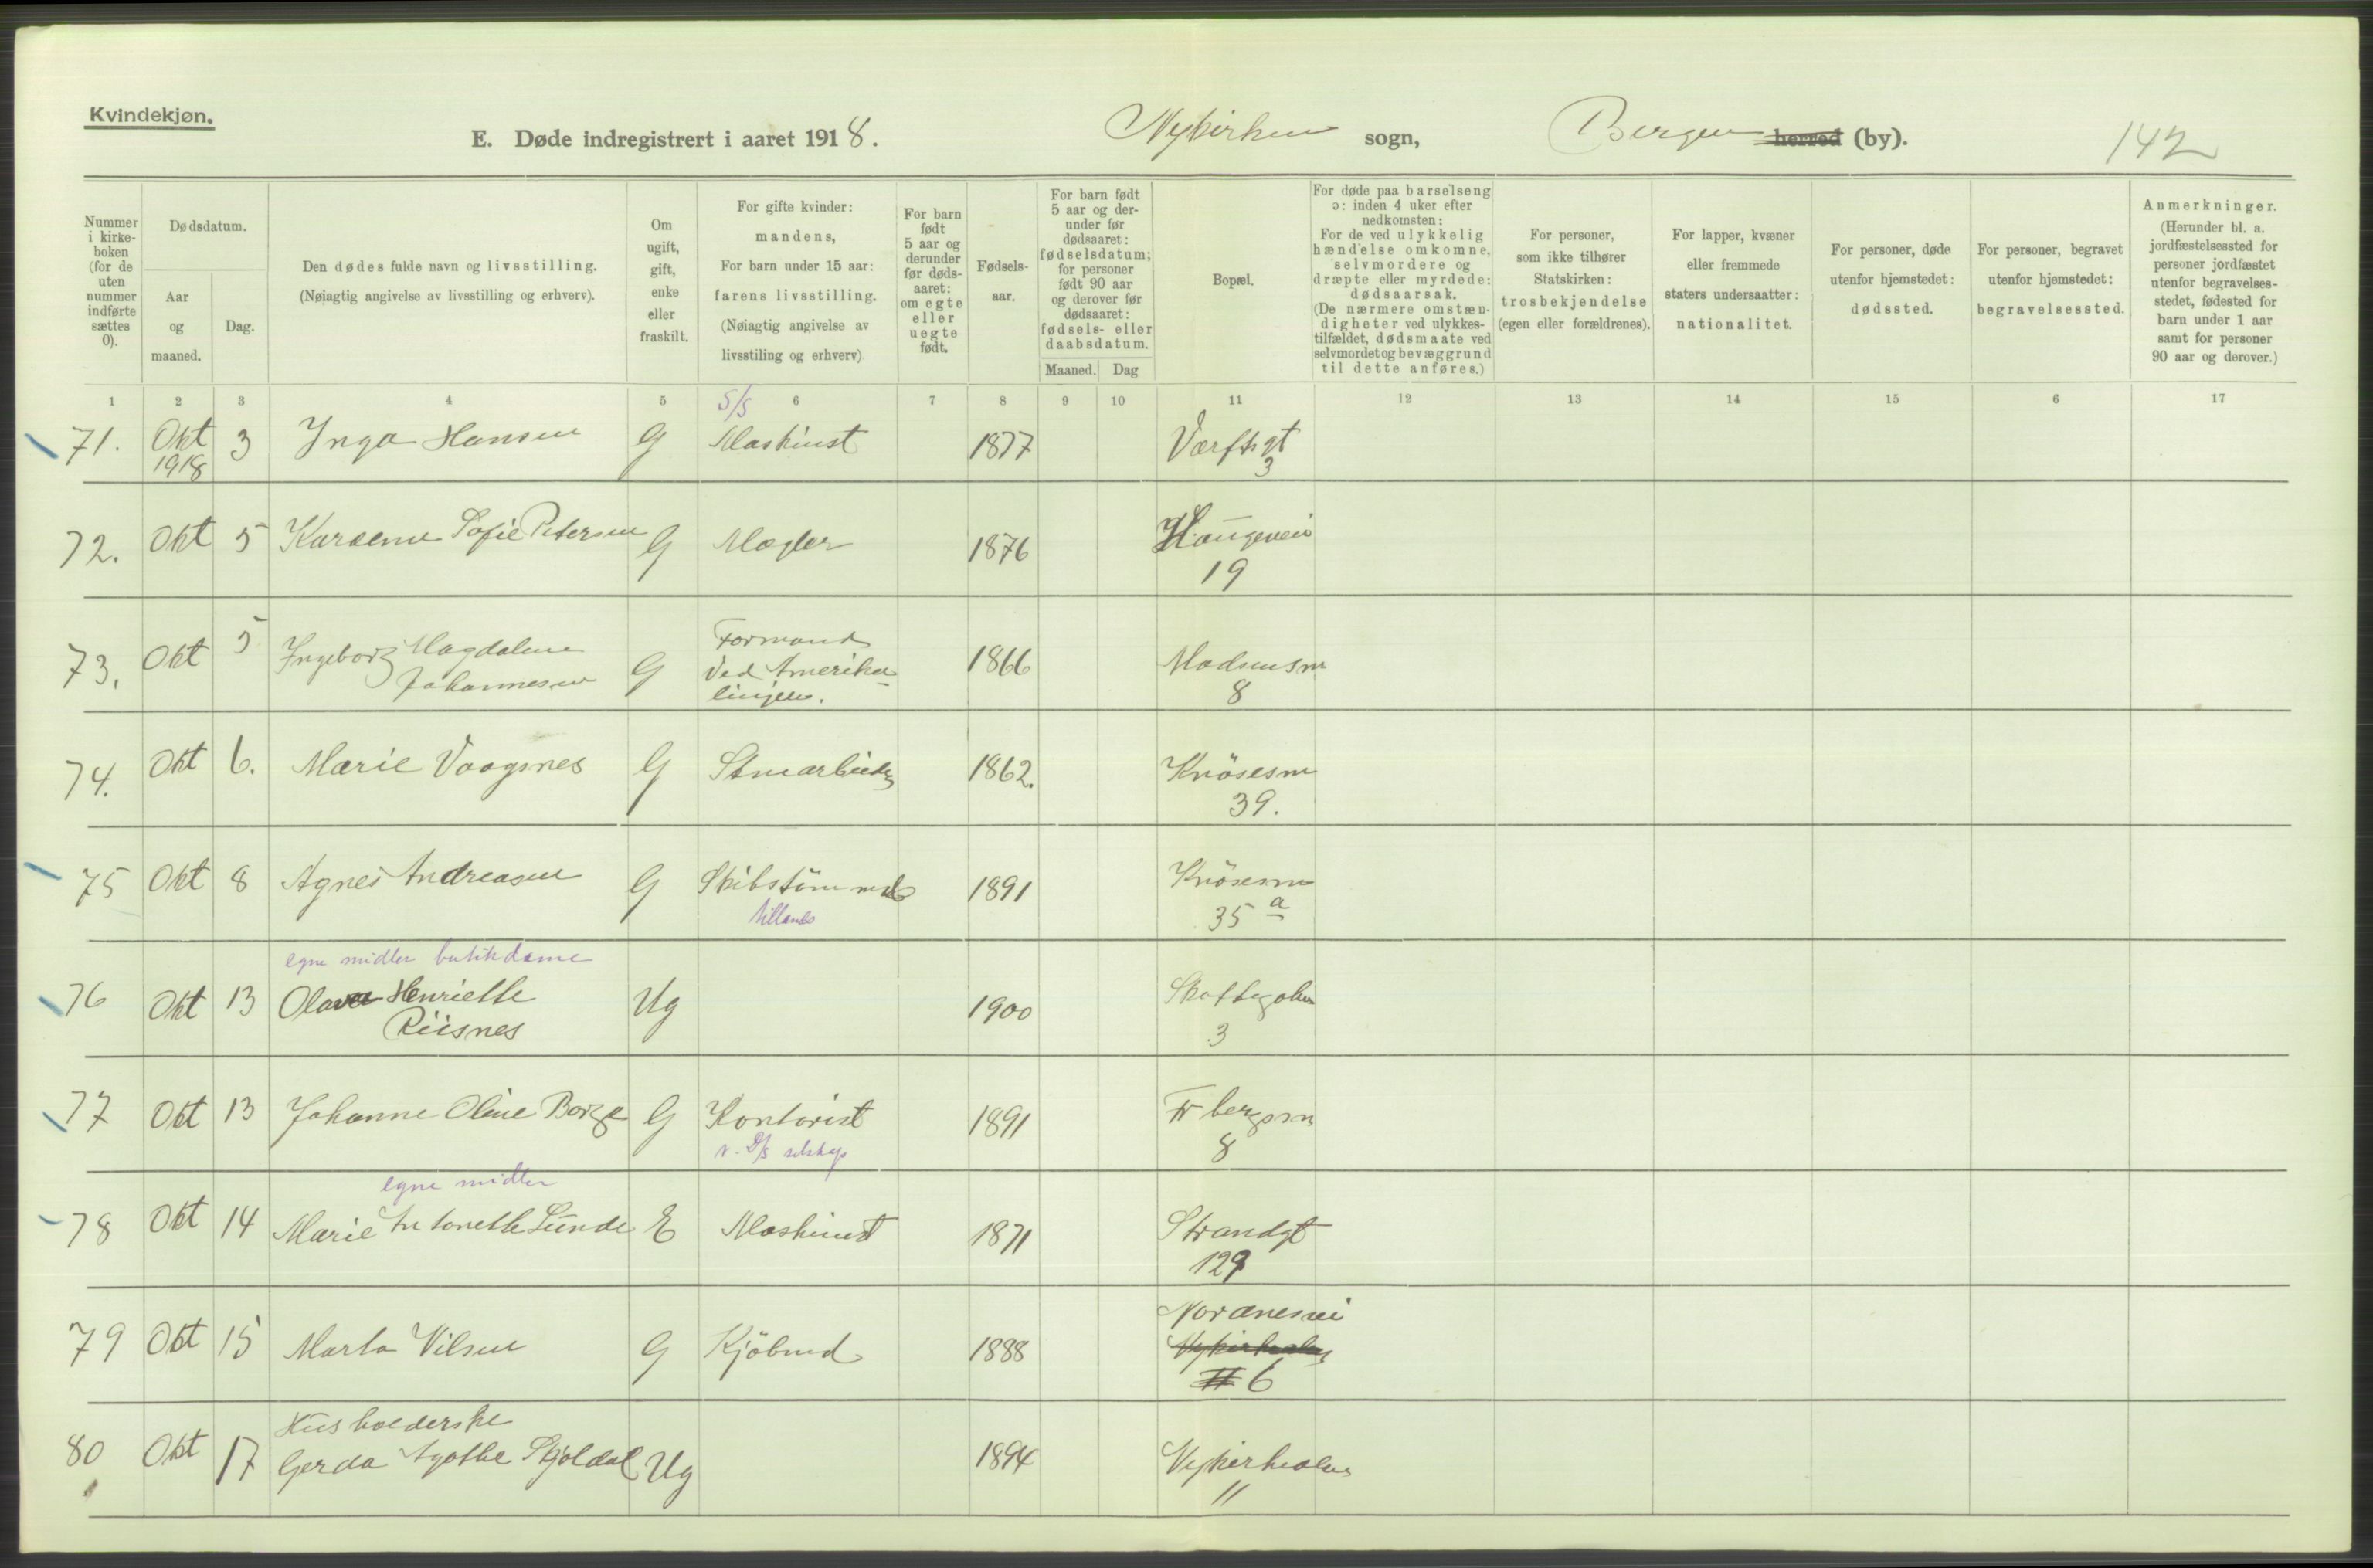 Kvindekjøn.
E. Døde indregistrert i aaret 1918. Nykirken sogn, Bergen herred (by). 142
Nummer i kirke- boken (for de uten nummer indførte sættes 0).
Dødsdatum.
Aar og maaned.
Dag.
Den dødes fulde navn og livsstilling.
(Nøiagtig angivelse av livsstilling og erhverv).
Om ugift, gift, enke eller fraskilt.
For gifte kvinder: mandens,
For barn under 15 aar: farens livsstilling.
(Nøiagtig angivelse av livsstiling og erhverv)
For barn født 5 aar og derunder før døds- aaret: om egte eller uegte født.
Fødsels- aar.
For barn født 5 aar og der- under før dødsaaret: fødselsdatum; for personer født 90 aar og derover før dødsaaret: fødsels- eller daabsdatum.
Maaned. Dag
Bopæl.
For døde paa barselseng ɔ: inden 4 uker efter nedkomsten:
For de ved ulykkelig hændelse omkomne, selvmordere og dræpte eller myrdede: dødsaarsak.
(De nærmere omstæn- digheter ved ulykkes- tilfældet, dødsmaate ved selvmordet og bevæggrund til dette anføres.)
For personer, som ikke tilhører Statskirken: trosbekjendelse (egen eller forældrenes).
For lapper, kvæner eller fremmede staters undersaatter: nationalitet.
For personer, døde utenfor hjemstedet: dødssted.
For personer, begravet utenfor hjemstedet: begravelsessted.
Anmerkninger.
(Herunder bl. a. jordfæstelsessted for personer jordfæstet utenfor begravelses- stedet, fødested for barn under 1 aar samt for personer 90 aar og derover.)
1 2 3 4 5 6 7 8 9 10 11 12 13 14 15 6 17
S/S
71. Okt 1918 3 Inga Hansen G Maskinist 1877 Værftsgt 3
72. Okt 5 Sofie Petersen G Mægler 1876 Haugeveien 19
73. Okt 5 Ingeborg Magdalene Johannesen G Formand ved Amerika- linjen. 1866 Madsensm 8
74. Okt 6. Marie Vaagsnes G Stenarbeider 1862. Knösesm 39.
75 Okt 8 Agnes Andreasen G Skibstömmerm 1891 Knösesm 35 a
egne midler butikdame
76 Okt 13 Olava Henriette Riisnes Ug 1900 Skottegaten 3
77 Okt 13 Johanne Oline Borge G Kontorist 1891 8
v. D/S selskap
egne midler
78 Okt 14 Marie Antonette Sunde E Maskinist 1871 Strandgt 129
79 Okt 15 Marta Nilsen G Kjöbmd 1888 Nordnesvei Nykirkealm 6
Husholderske
80 Okt 17 Gerda Agathe Skjoldal Ug 1894 Nykirkealm 11